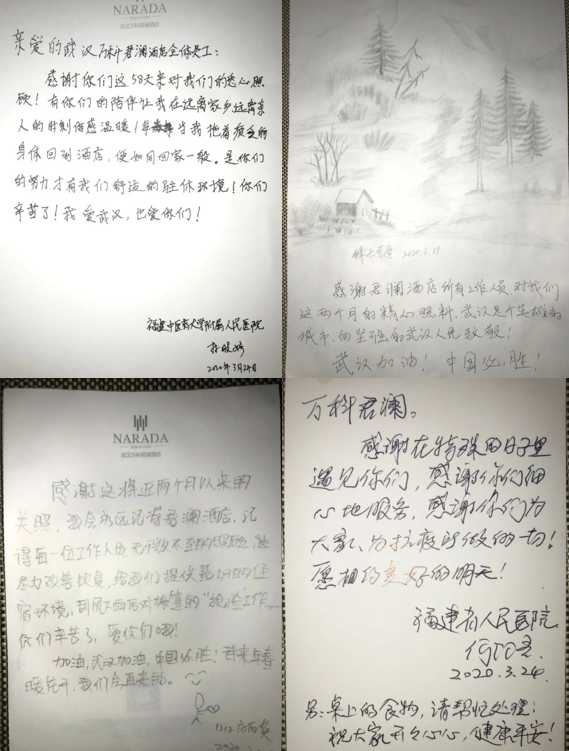 NARADA
武汉万科君澜酒店
亲爱的武汉万科君澜酒店全体员工:
感谢你们这58天来对我们的悉心照
顾!有你们的陪伴让我在远离家乡远离亲
人的时刻倍感温暖!每当我拖着疲惫的
身体回到酒店,便如同回家一般。是你们
的努力才有我们舒适的驻休环境!你们
辛苦了!我爱武汉,也爱你们!
福建中医药大学附属人民医院
2020年3月24日
2020.3.11
感谢君澜酒店所有工作人员对我们
这两个月的精心照料,武汉是个英雄的
城市,向坚强的武汉人民致敬!
武汉加油!中国必胜!
NARADA
武汉万科君澜酒店
感谢这将近两个月以来的
关照,我会永远记得君澜酒店,记
得每一位工作人员
尽力改善饮食,给我们提供最好的住
宿环境,
你们辛苦了,爱你们哦!
加油,武汉加油,中国必胜!待来年春
暖花开,我们会再来的。
1212
2020.
万科君澜。
感谢在特殊的日子里
遇见你们,感谢你们细
心地服务,感谢你们为
大家、为抗疫所做的一切!
愿相约美好的明天!
福建省人民医院
2020.3.24
另:桌上的食物,请帮忙处理;
祝大家开开心心,健康平安!